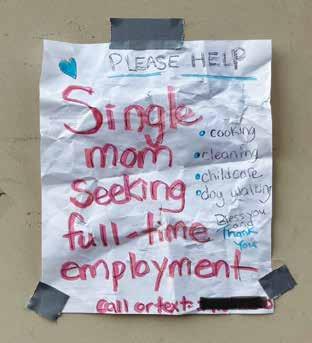 PLEASE HELP
Single
mom
seeking
full-time
employment
• cooking
• cleaning
• childcare
• dog walking
Bless you
and
Thank
You
call or text: